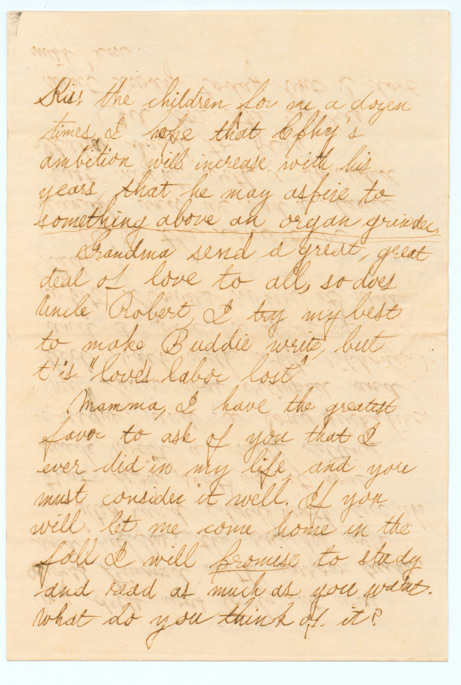 Kiss the children for me a dozen
times, I hope that Effy's
ambition will increase with his
years, that he may aspire to
something above an organ grinder.
Grandma send a great, great
deal of love to all, so does
Uncle Robert, I try my best
to make Buddie write, but
t's "love's labor lost"
Mamma, I have the greatest
favor to ask of you that I
ever did in my life, and you
must consider it well. If you
will let me come home in the
fall I will promise to study
and read as much as you want.
What do you think of it?